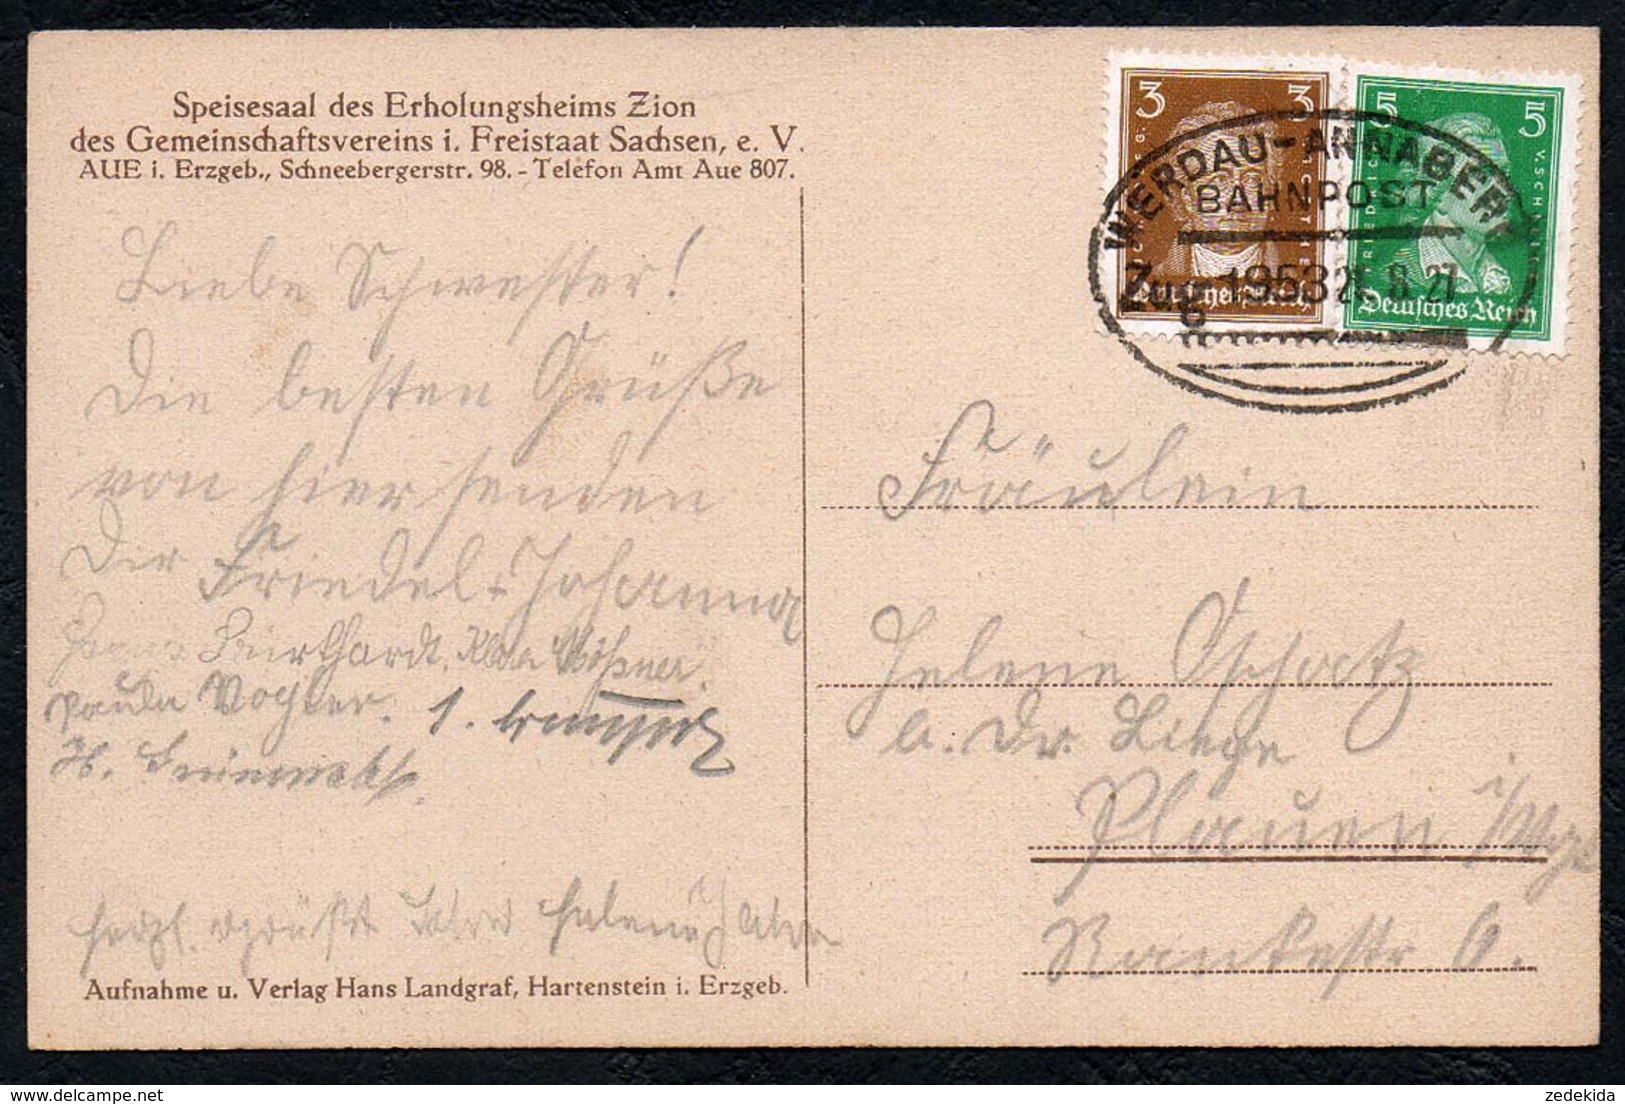 Speisesaal des Erholungsheims Zion
des Gemeinschaftsvereins i. Freistaat Sachsen, e. V.
AUE i. Erzgeb., Schneebergerstr. 98. - Telefon Amt Aue 807.
Liebe Schwester!
Die besten Grüße
von hier senden
Dir Friedel u. Johanna
Burkhardt.
Paula Vogler.
herzl. grüßt
Aufnahme u. Verlag Hans Landgraf, Hartenstein i. Erzgeb.
3 3
Deutsches Reich
5 5
Deutsches Reich
WERDAU-ANNABERG
BAHNPOST
Zug 1953 8 27
Fräulein
Helene Oschatz
a. Dr.
Plauen i/Vgt
Rankestr 6.
zedekida